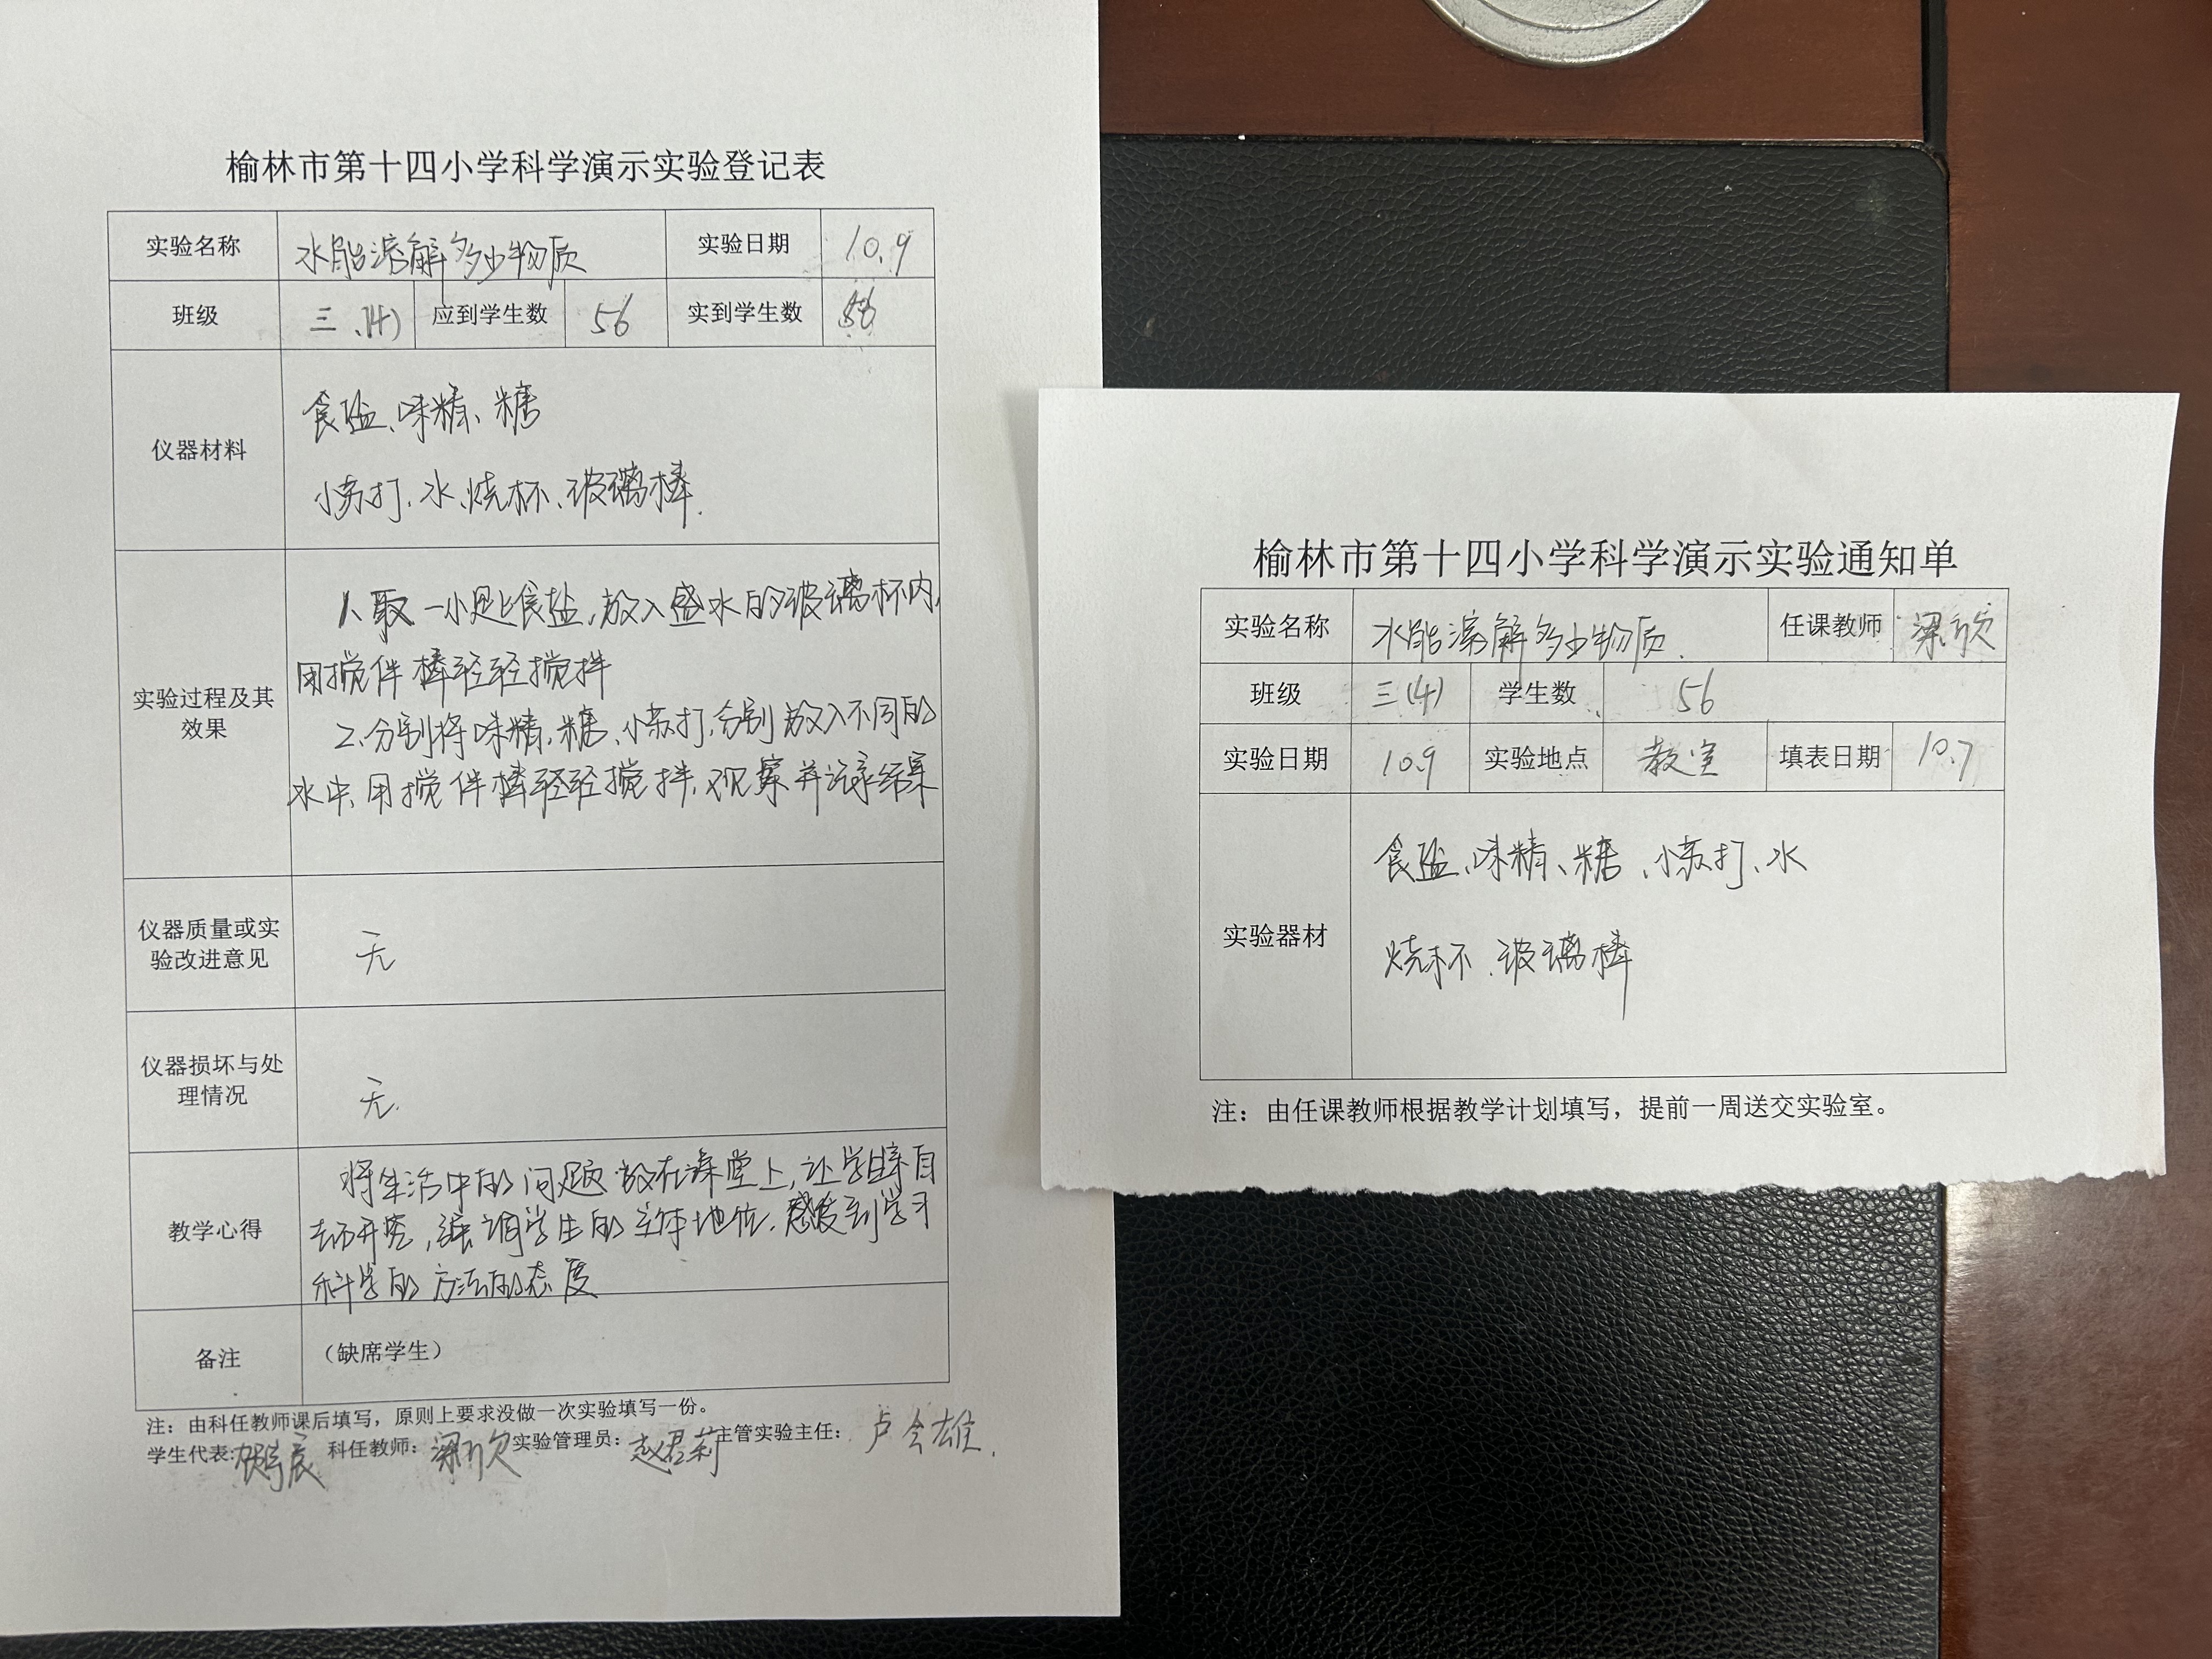 榆林市第十四小学科学演示实验登记表
实验名称 水能溶解多少物质 实验日期 10.9
班级 三.(4) 应到学生数 56 实到学生数 56
仪器材料
食盐、味精、糖
小苏打、水、烧杯、玻璃棒.
实验过程及其
效果
1、取一小匙食盐,放入盛水的玻璃杯内,
用搅伴棒轻轻搅拌
2、分别将味精、糖、小苏打,分别放入不同的
水中、用搅伴棒轻轻搅拌,观察并记录结果
仪器质量或实
验改进意见
无
仪器损坏与处
理情况
无.
教学心得
将生活中的问题放在课堂上,让学生亲自
去研究,强调学生的主体地位,感受到学习
科学的方法的态度
备注 (缺席学生)
注：由科任教师课后填写，原则上要求没做一次实验填写一份。
学生代表: 科任教师: 梁欣 实验管理员: 赵君莉 主管实验主任: 卢会雄.
榆林市第十四小学科学演示实验通知单
实验名称 水能溶解多少物质. 任课教师 梁欣
班级 三(4) 学生数 56
实验日期 10.9 实验地点 教室 填表日期 10.7
实验器材
食盐、味精、糖、小苏打、水
烧杯、玻璃棒
注：由任课教师根据教学计划填写，提前一周送交实验室。